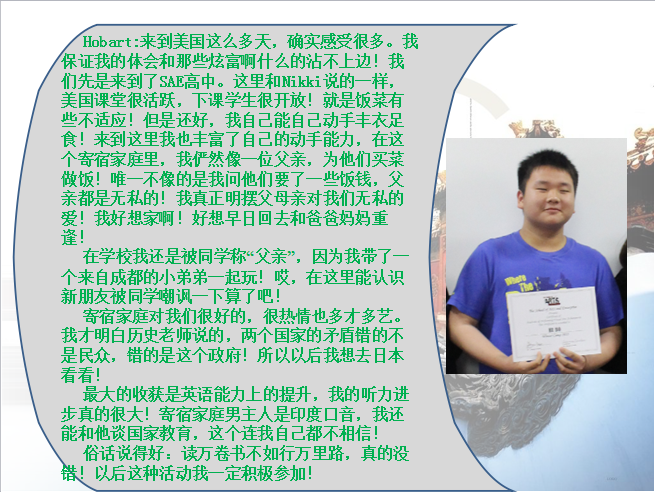 Hobart:来到美国这么多天，确实感受很多。我
保证我的体会和那些炫富啊什么的沾不上边！我
们先是来到了SAE高中。这里和Nikki说的一样，
美国课堂很活跃，下课学生很开放！就是饭菜有
些不适应！但是还好，我自己能自己动手丰衣足
食！来到这里我也丰富了自己的动手能力，在这
个寄宿家庭里，我俨然像一位父亲，为他们买菜
做饭！唯一不像的是我问他们要了一些饭钱，父
亲都是无私的！我真正明摆父母亲对我们无私的
爱！我好想家啊！好想早日回去和爸爸妈妈重
逢！
在学校我还是被同学称“父亲”，因为我带了一
个来自成都的小弟弟一起玩！哎，在这里能认识
新朋友被同学嘲讽一下算了吧！
寄宿家庭对我们很好的，很热情也多才多艺。
我才明白历史老师说的，两个国家的矛盾错的不
是民众，错的是这个政府！所以以后我想去日本
看看！
最大的收获是英语能力上的提升，我的听力进
步真的很大！寄宿家庭男主人是印度口音，我还
能和他谈国家教育，这个连我自己都不相信！
俗话说得好：读万卷书不如行万里路，真的没
错！以后这种活动我一定积极参加！